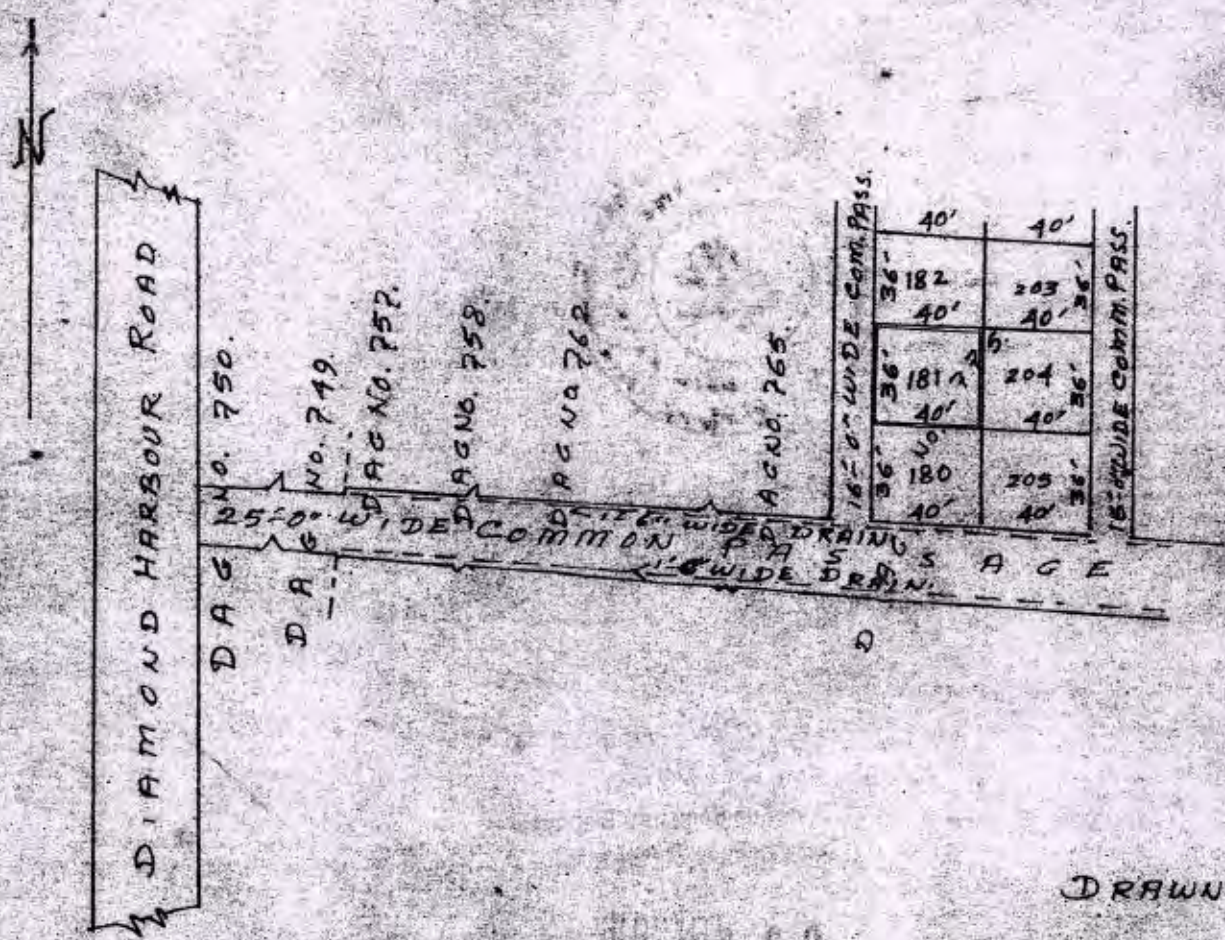 N
DIAMOND HARBOUR ROAD
DAG NO. 750.
DAG NO. 749.
DAG NO. 757.
DAG NO. 758.
DAG NO 762
DAG NO. 765.
16'-0" WIDE COM. PASS.
40' 40'
36' 182 203 36'
40' 40'
36' 181 204 36'
40' 40'
36' 180 205 36'
40' 40'
16'-0" WIDE COMM. PASS.
25'-0" WIDE COMMON PASSAGE
WIDE DRAIN
1'-6" WIDE DRAIN.
DRAWN